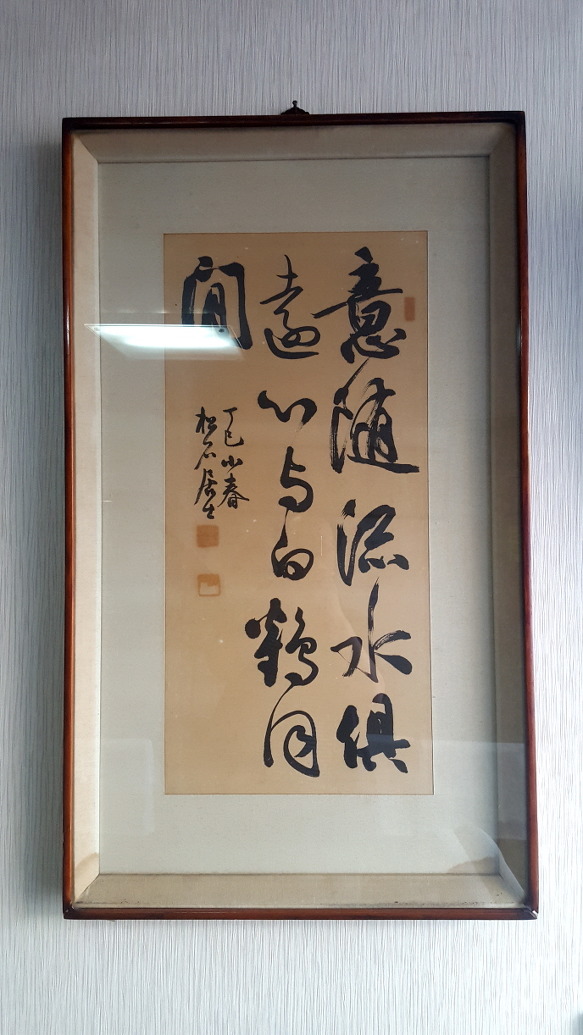 意随流水俱
遠心与白鶴同
閒
丁巳小春
松石居士